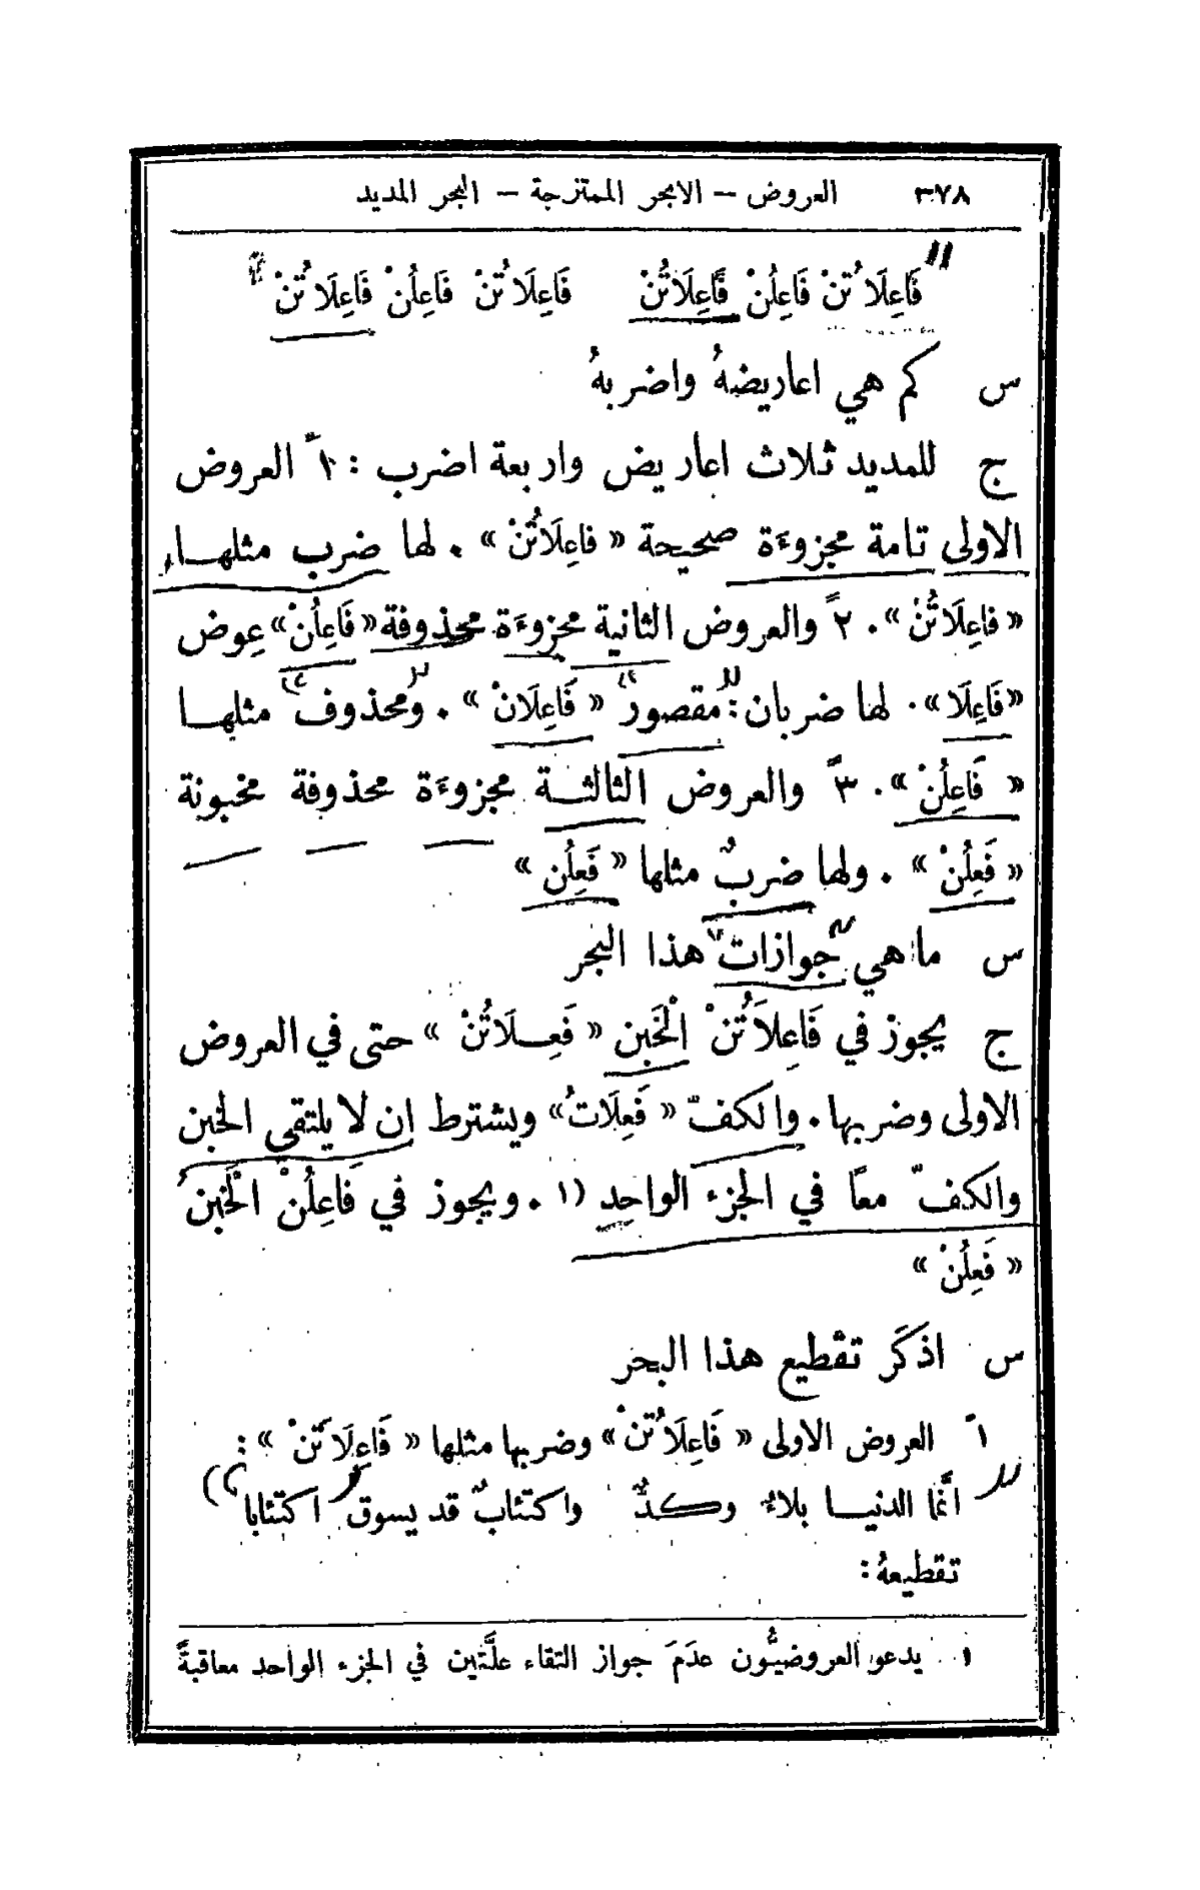 ٣٧٨ العروض – الابحر الممتزجة – البحر المديد
فَاعِلَاتُنْ فَاعِلُنْ فَاعِلَاتُنْ فَاعِلَاتُنْ فَاعِلُنْ فَاعِلَاتُنْ
س كم هي اعاريضهُ واضربهُ
ج للمديد ثلاث اعاريض واربعة اضرب : ١ً العروض
الاولى تامة مجزوءَة صحيحة « فاعِلَاتُنْ » . لها ضرب مثلهـا
« فاعِلَاتُنْ » . ٢ً والعروض الثانية مجزوءَة محذوفة « فَاعِلُنْ » عِوض
« فَاعِلَا » . لها ضربان : مقصور « فَاعِلَانْ » . ومحذوف مثلهـا
« فَاعِلُنْ » . ٣ً والعروض الثالثـة مجزوءَة محذوفة مخبونة
« فَعِلُنْ » . ولها ضربٌ مثلها « فَعِلُن »
س ما هي جوازات هذا البحر
ج يجوز في فَاعِلَاتُنْ الْخَبن « فَعِـلَاتُنْ » حتى في العروض
الاولى وضربها . والكفّ « فَعِلَاتُ » ويشترط ان لا يلتقي الخبن
والكفّ معًا في الجزء الواحد (١ . ويجوز في فَاعِلُنْ الْخَبنُ
« فَعِلُنْ »
س اذكَر تقْطيع هذا البحر
١ً العروض الاولى « فَاعِلَاتُنْ » وضربها مثلها « فَاعِلَاتَنْ » :
انَّما الدنيـا بلاءٌ وكدٌّ واكتئابٌ قد يسوق اكتئابا
تقطيعهُ :
١ يدعو العروضيُّون عدَمَ جواز التقاء علَّتين في الجزء الواحد معاقبةً